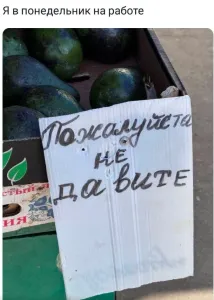 Я в понедельник на работе
Пожалуйста
не
давите